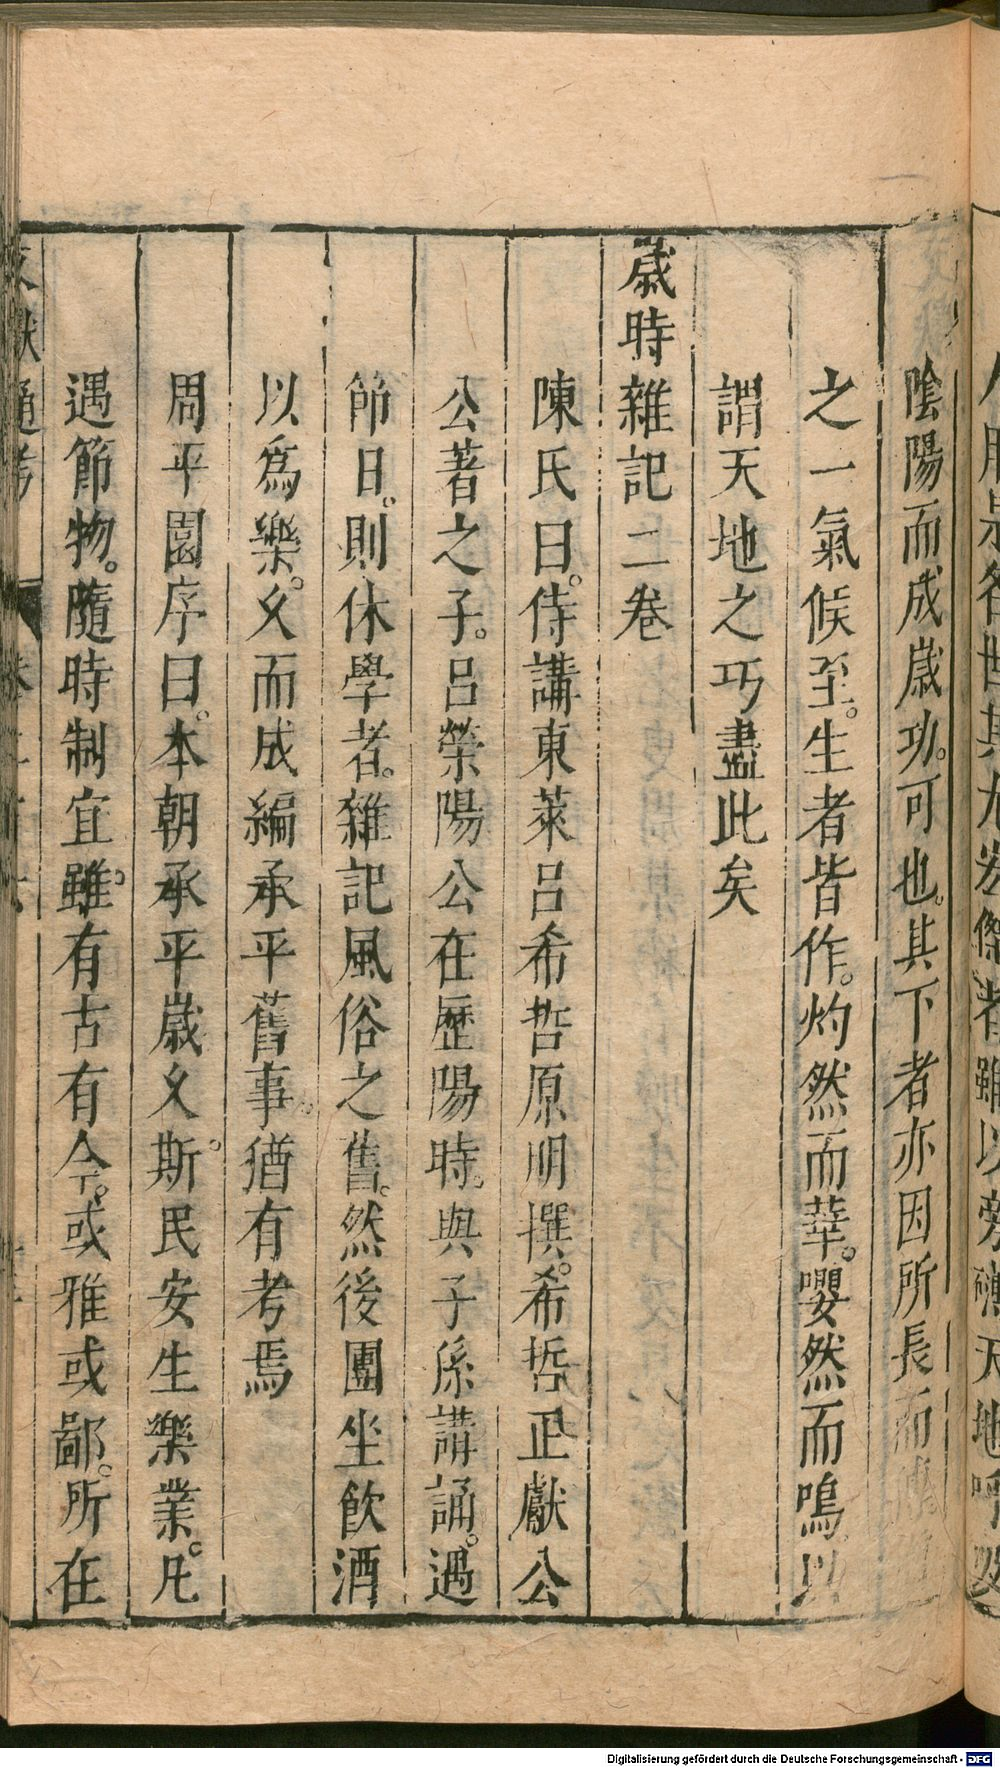 陰陽而成歲功。可也。其下者亦因所長而
之一氣候至。生者皆作。灼然而華。嚶然而鳴以
謂天地之巧盡此矣
歲時雜記二卷
陳氏曰。侍講東萊呂希哲原明撰。希哲正獻公
公著之子。呂滎陽公在歷陽時。與子孫講誦。遇
節日。則休學者。雜記風俗之舊。然後團坐飲酒
以爲樂。久而成編承平舊事。猶有考焉
周平園序曰。本朝承平歲久。斯民安生樂業。凡
遇節物。隨時制宜。雖有古有今。或雅或鄙。所在
Digitalisierung gefördert durch die Deutsche Forschungsgemeinschaft - DFG